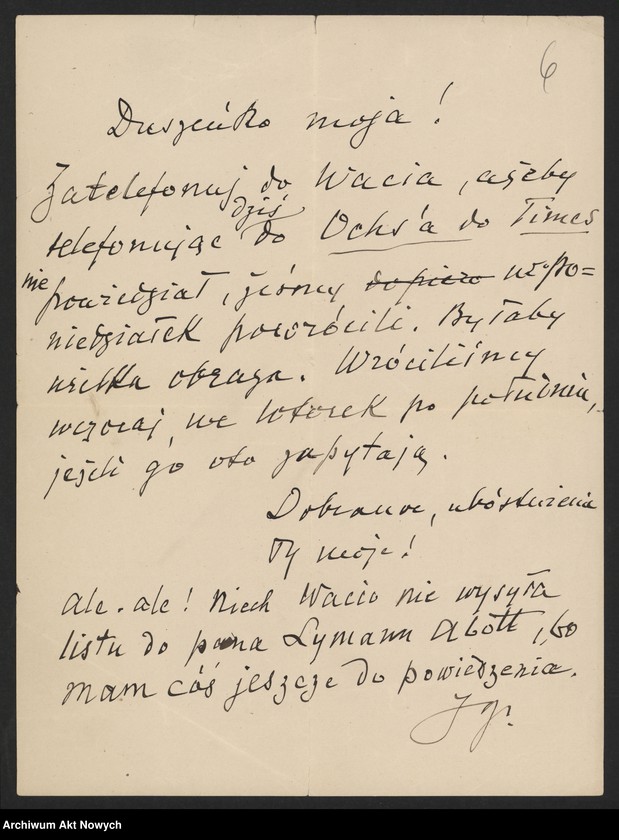 6
Duszeńko moja!
Zatelefonuj do Wacia, ażeby
telefonując dziś do Ochs'a do Times
nie powiedział, żeśmy dopiero w po=
niedziałek powrócili. Byłaby
wielka obraza. Wróciliśmy
wczoraj, we wtorek po południu,
jeżli go oto zapytają.
Dobranoc, ubóstwienie
Ty moje!
Ale. ale! Niech Wacio nie wysyła
listu do pana Lymann Abott, bo
mam cóś jeszcze do powiedzenia.
Jgn.
Archiwum Akt Nowych